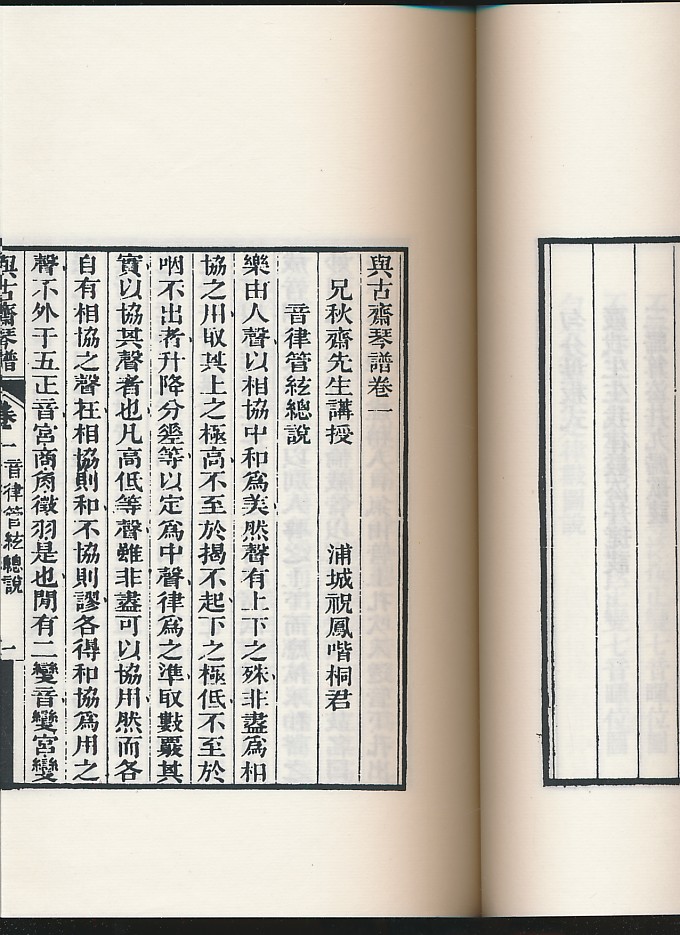 與古齋琴譜卷一
兄秋齋先生講授　浦城祝鳳喈桐君
音律管絃總說
樂由人聲以相協中和爲美然聲有上下之殊非盡爲相
協之用取其上之極高不至於揭不起下之極低不至於
咽不出者升降分等以定爲中聲律爲之準取數覈其
實以協其聲者也凡高低等聲雖非盡可以協用然而各
自有相協之聲在相協則和不協則謬各得和協爲用之
聲不外于五正音宮商角徵羽是也閒有二變音變宮變
與古齋琴譜　卷一　音律管絃總說　一